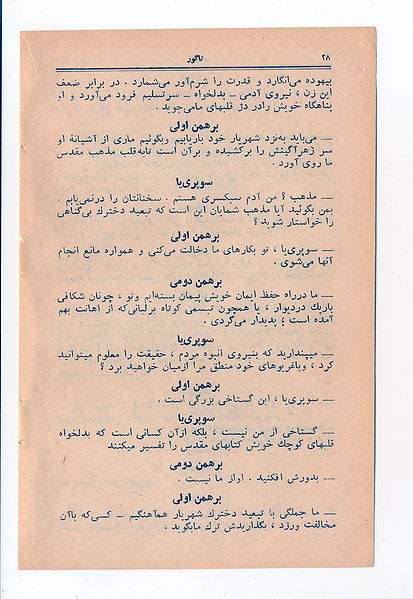 ۲۸
تاگور
بیهوده می‌انگارد و قدرت را شرم‌آور می‌شمارد . در برابر ضعف
این زن ، نیروی آدمی ــ بدلخواه ــ سرتسلیم فرود می‌آورد و او
پناهگاه خویش رادر دژ قلبهای مامی‌جوید .
برهمن اولی
ــ می‌باید به‌نزد شهریار خود باریابیم وبگوئیم ماری از آشیانهٔ او
سر زهرآگینش را برکشیده و برآن است تابه‌قلب مذهب مقدس
ما روی آورد .
سوپری‌یا
ــ مذهب ؟ من آدم سبکسری هستم . سخنانتان را درنمی‌یابم .
بمن بگوئید آیا مذهب شمایان این است که تبعید دخترك بی‌گناهی
را خواستار شوید ؟
برهمن اولی
ــ سوپری‌یا ، تو بکارهای ما دخالت می‌کنی و همواره مانع انجام
آنها می‌شوی .
برهمن دومی
ــ ما درراه حفظ ایمان خویش پیمان بسته‌ایم وتو ، چونان شکافی
باریك دردیوار ، یا همچون تبسمی کوتاه برلبانی‌که از اهانت بهم
آمده است ؛ پدیدار می‌گردی .
سوپری‌یا
ــ میپندارید که بنیروی انبوه مردم ، حقیقت را معلوم میتوانید
کرد ، وباغریوهای خود منطق مرا ازمیان خواهید برد ؟
برهمن اولی
ــ سوپری‌یا ، این گستاخی بزرگی است .
سوپری‌یا
ــ گستاخی از من نیست ، بلکه ازآن کسانی است که بدلخواه
قلبهای کوچك خویش کتابهای مقدس را تفسیر میکنند
برهمن دومی
ــ بدورش افکنید . اواز ما نیست .
برهمن اولی
ــ ما جملگی با تبعید دخترك شهریار همآهنگیم ــ کسی‌که باآن
مخالفت ورزد ، بگذاریدش ترك مابگوید .